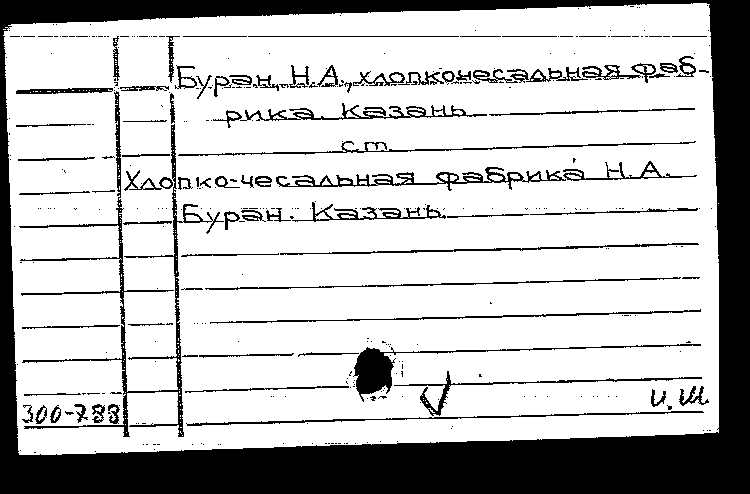 Буран, Н.А., хлопкочесальная фаб-
рика. Казань
ст.
Хлопко-чесальная фабрика Н.А.
Буран. Казань.
300-788
И.Ш.